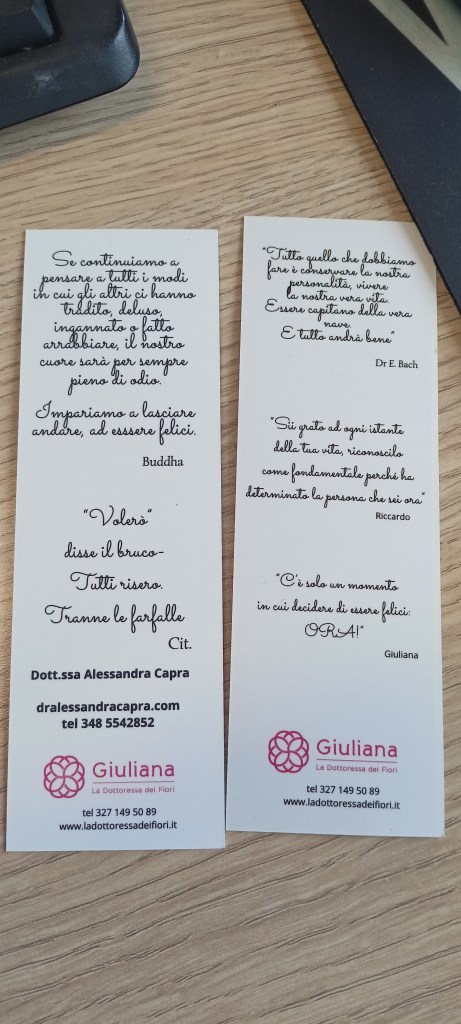 Se continuiamo a
pensare a tutti i modi
in cui gli altri ci hanno
tradito, deluso,
ingannato o fatto
arrabbiare, il nostro
cuore sarà per sempre
pieno di odio.
Impariamo a lasciare
andare, ad esssere felici.
Buddha
"Volerò"
disse il bruco-
Tutti risero.
Tranne le farfalle
Cit.
Dott.ssa Alessandra Capra
dralessandracapra.com
tel 348 5542852
Giuliana
La Dottoressa dei Fiori
tel 327 149 50 89
www.ladottoressadeifiori.it
"Tutto quello che dobbiamo
fare è conservare la nostra
personalità, vivere
la nostra vera vita.
Essere capitano della vera
nave.
E tutto andrà bene"
Dr E. Bach
"Sii grato ad ogni istante
della tua vita, riconoscilo
come fondamentale perché ha
determinato la persona che sei ora"
Riccardo
"C'è solo un momento
in cui decidere di essere felici:
ORA!"
Giuliana
Giuliana
La Dottoressa dei Fiori
tel 327 149 50 89
www.ladottoressadeifiori.it